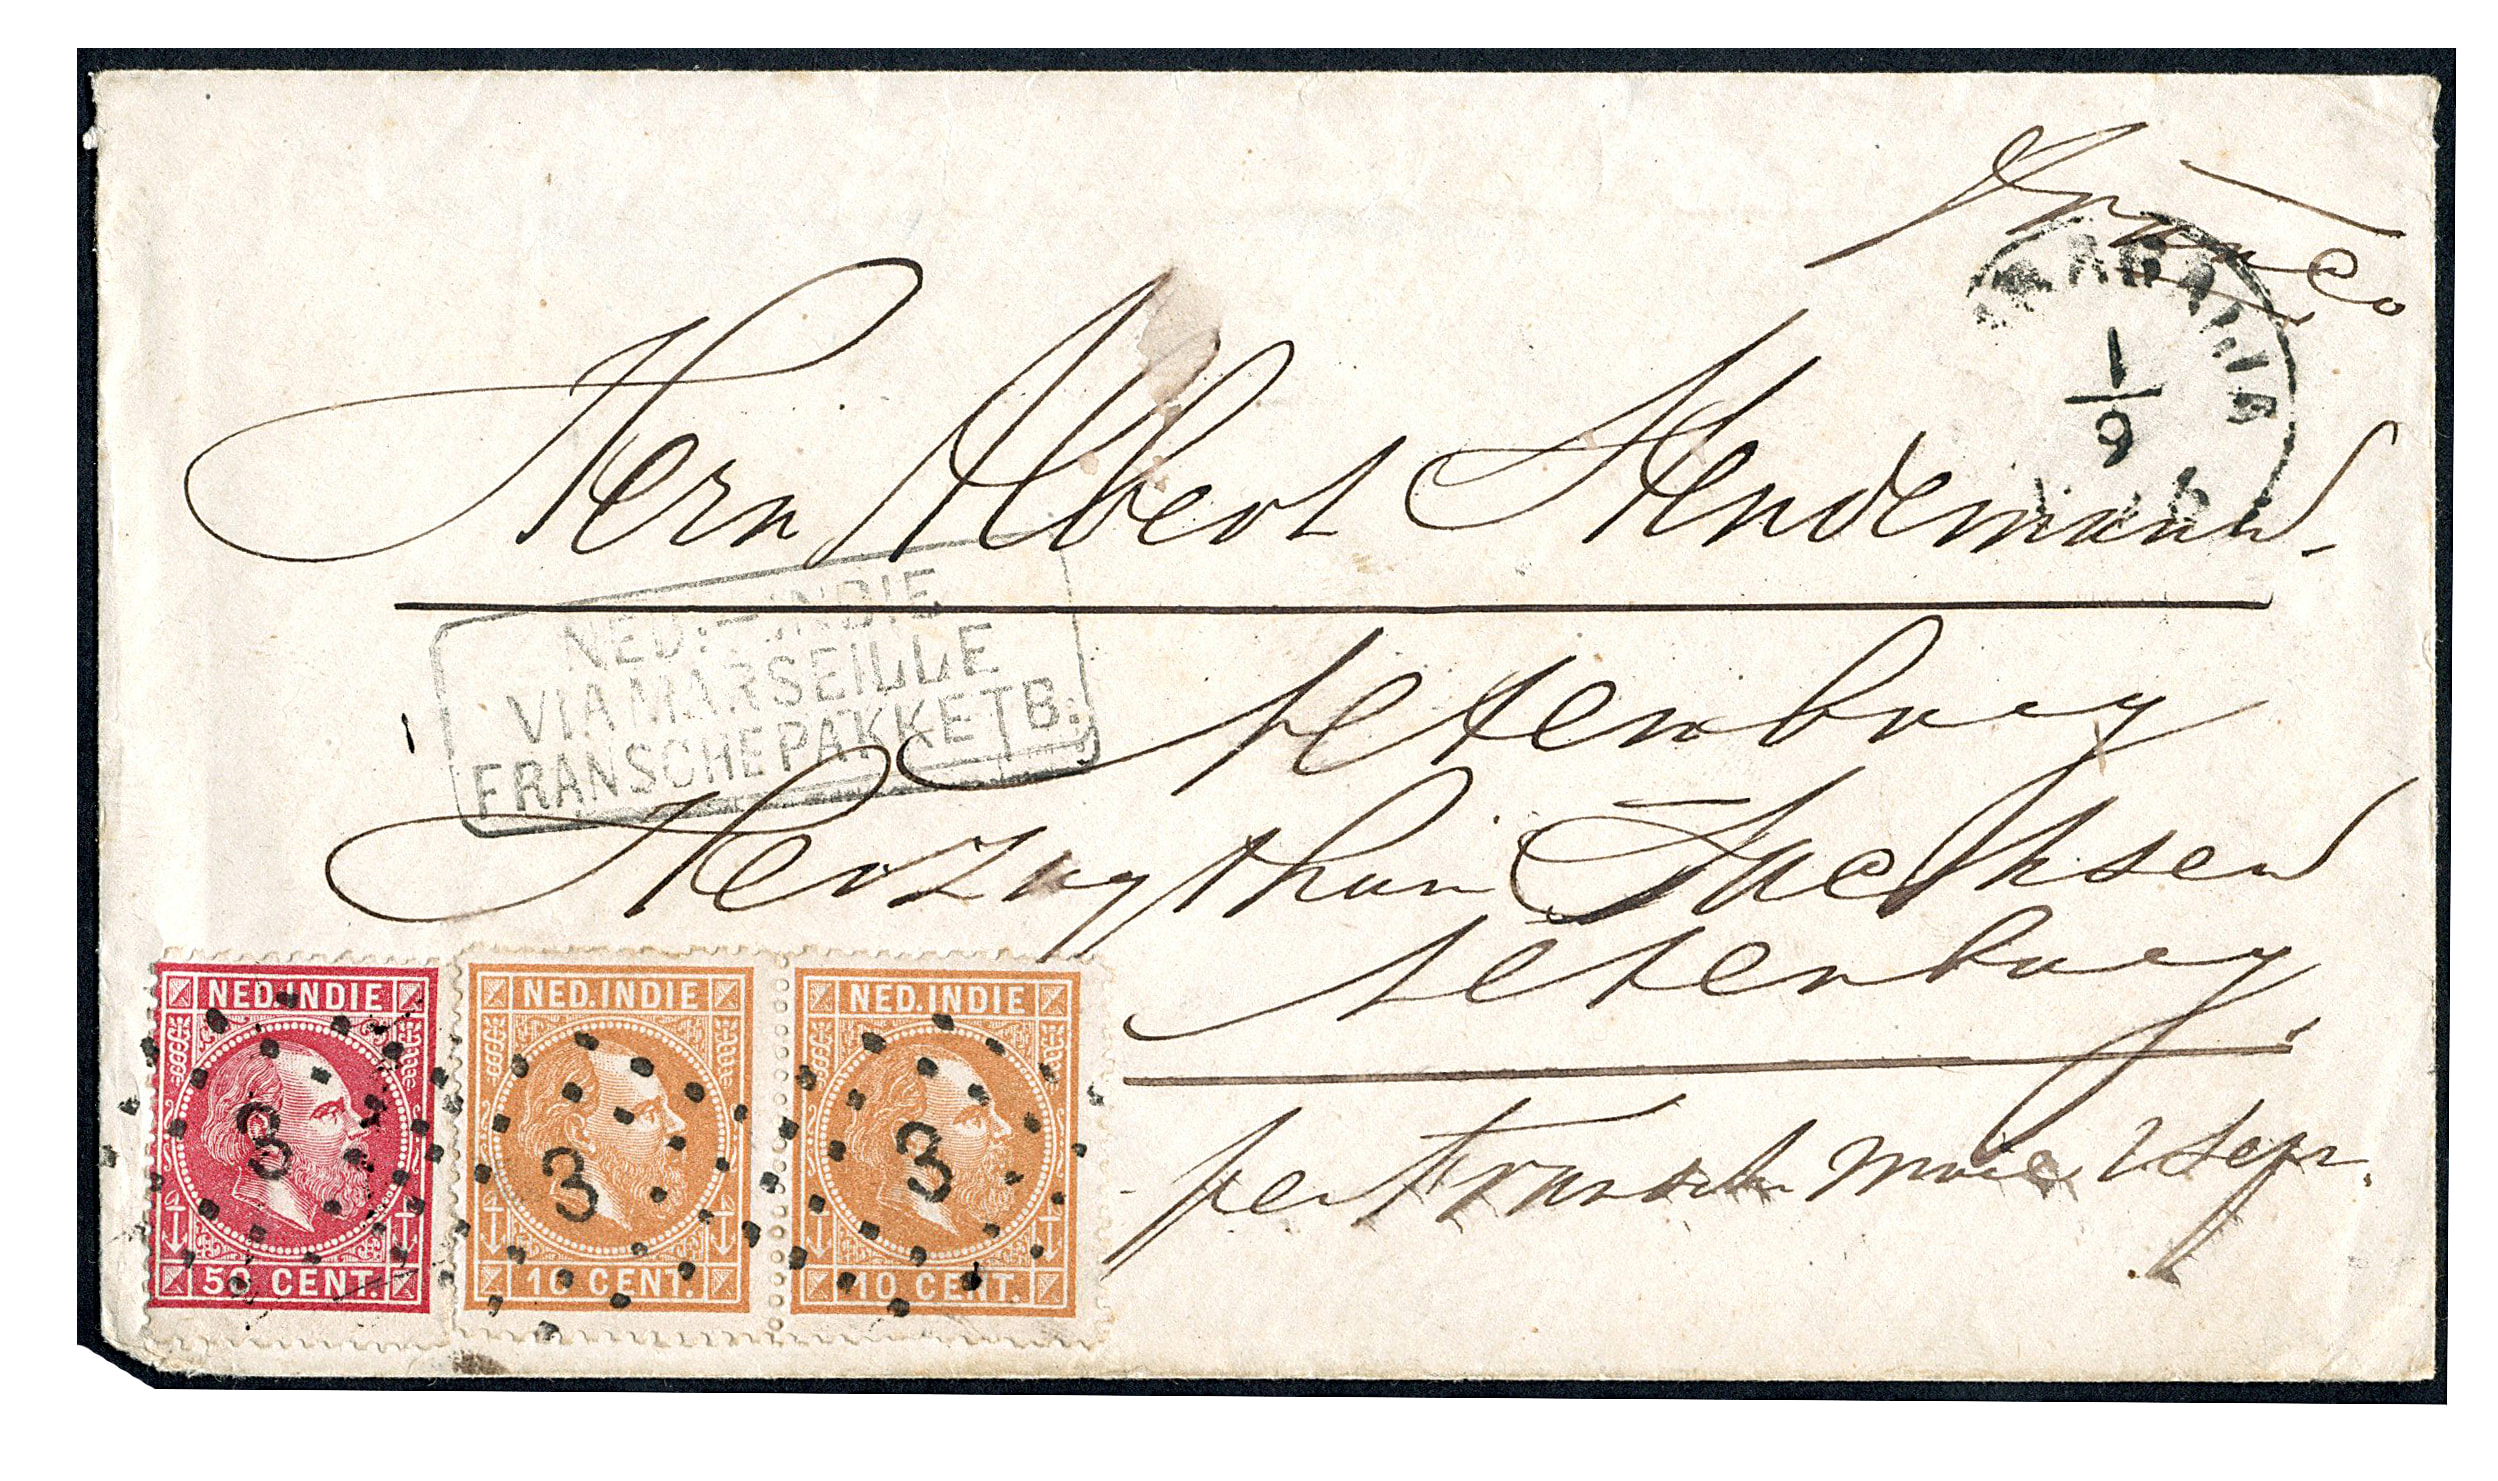 Franco
SOERABAIJA
1/9
Herrn Albert Stendemann
NED.-INDIE
VIA MARSEILLE
FRANSCHE PAKKETB.
Altenburg
Herzogthum Sachsen
Altenburg.
per Fransch Maie 2 Sepr.
NED. INDIE NED. INDIE NED. INDIE
3 3 3
50 CENT. 10 CENT. 10 CENT.